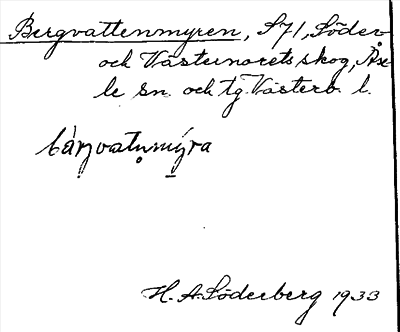 Bergvattenmyren, S71, Söder-
och Västernorets skog, Åse-
le sn. och tg Västerb. l.
bàrjvatn̥mýra
H. A. Söderberg 1933